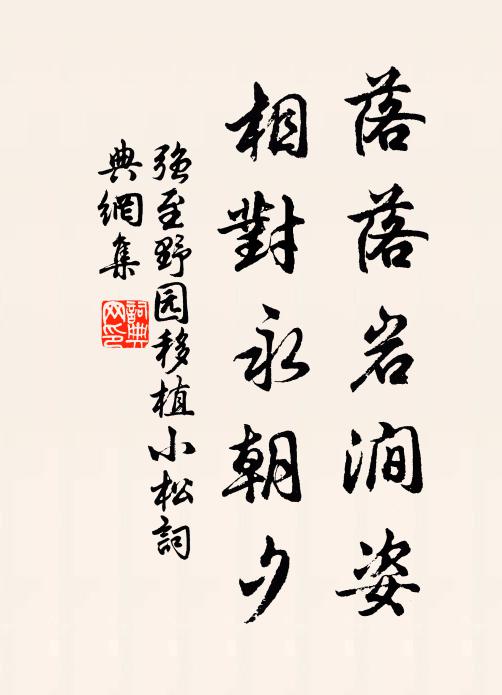 落落岩澗姿
相對永朝夕
強至野园移植小松詞
典網集
詞典
网印